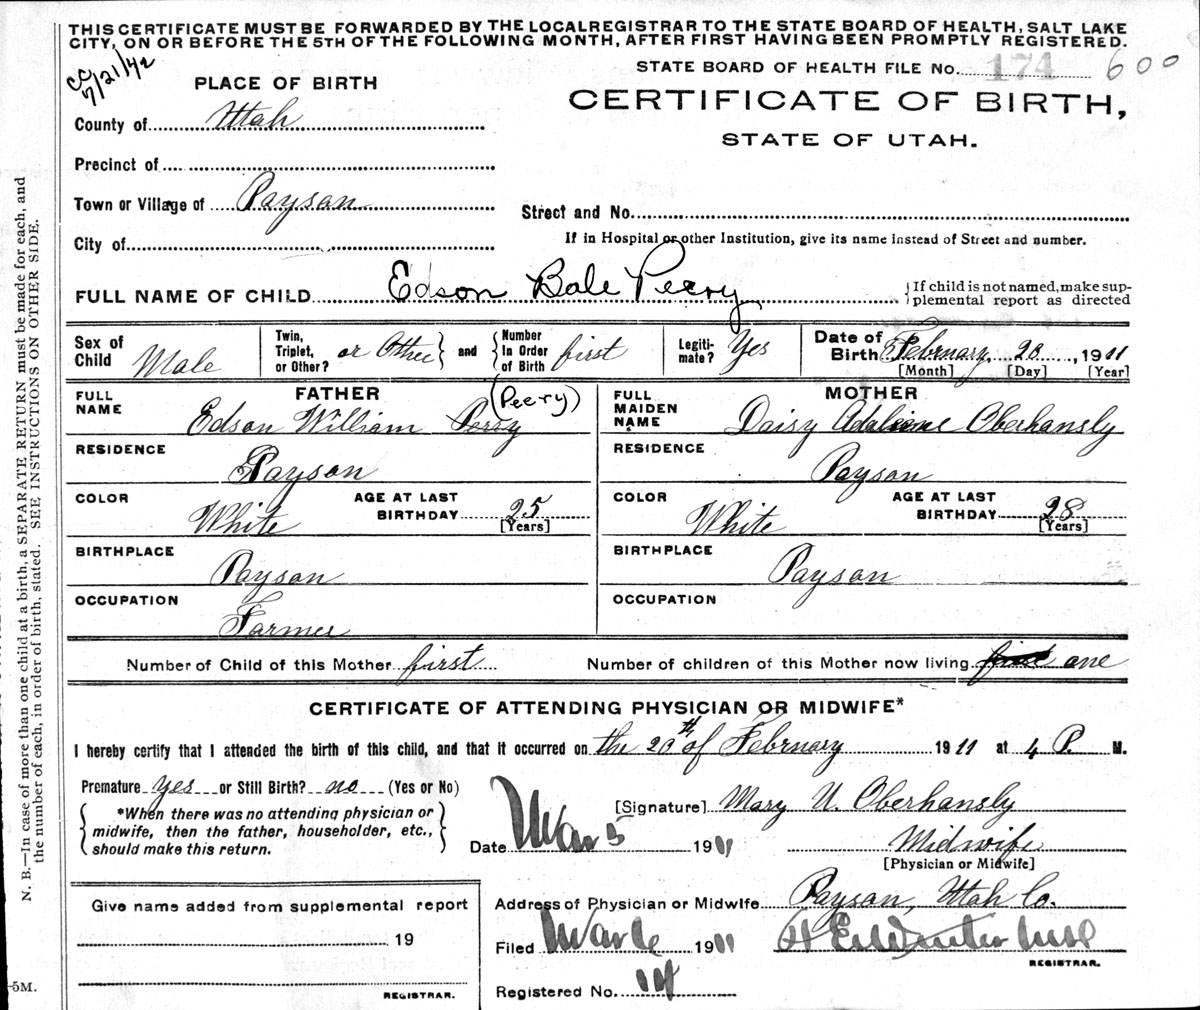 THIS CERTIFICATE MUST BE FORWARDED BY THE LOCAL REGISTRAR TO THE STATE BOARD OF HEALTH, SALT LAKE
CITY, ON OR BEFORE THE 5TH OF THE FOLLOWING MONTH, AFTER FIRST HAVING BEEN PROMPTLY REGISTERED.
CC 7/21/42
STATE BOARD OF HEALTH FILE No. 174 600
PLACE OF BIRTH
CERTIFICATE OF BIRTH,
County of Utah
STATE OF UTAH.
Precinct of
Town or Village of Payson
Street and No.
City of
If in Hospital or other Institution, give its name instead of Street and number.
FULL NAME OF CHILD Edson Bale Peery
If child is not named, make sup-
plemental report as directed
Sex of Child Male
Twin, Triplet, or Other? or Other and Number In Order of Birth first
Legiti-mate? Yes
Date of Birth February 20, 1911
[Month] [Day] [Year]
FATHER (Peery)
FULL NAME Edson William Perry
RESIDENCE Payson
COLOR White AGE AT LAST BIRTHDAY 25 [Years]
BIRTHPLACE Payson
OCCUPATION Farmer
MOTHER
FULL MAIDEN NAME Daisy Oberhansly
RESIDENCE Payson
COLOR White AGE AT LAST BIRTHDAY 28 [Years]
BIRTHPLACE Payson
OCCUPATION
Number of Child of this Mother first Number of children of this Mother now living one
CERTIFICATE OF ATTENDING PHYSICIAN OR MIDWIFE*
I hereby certify that I attended the birth of this child, and that it occurred on the 20th of February 1911 at 4 P. M.
Premature yes or Still Birth? no (Yes or No)
*When there was no attending physician or
midwife, then the father, householder, etc.,
should make this return.
[Signature] Mary U. Oberhansly
Date Mar 5 1911 Midwife
[Physician or Midwife]
Give name added from supplemental report
19
REGISTRAR.
Address of Physician or Midwife Payson, Utah Co.
Filed Mar 6 1911
REGISTRAR.
Registered No. 14
N. B.—In case of more than one child at a birth, a SEPARATE RETURN must be made for each, and
the number of each, in order of birth, stated. SEE INSTRUCTIONS ON OTHER SIDE.
-5M.